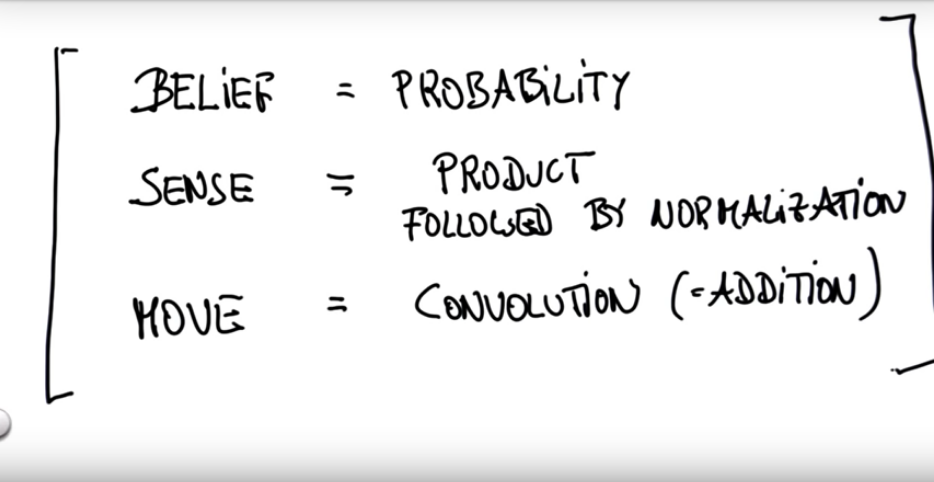 BELIEF = PROBABILITY
SENSE = PRODUCT
FOLLOWED BY NORMALIZATION
MOVE = CONVOLUTION (=ADDITION)